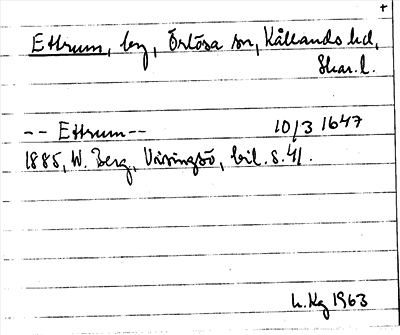 +
Ettrum, by, Örlösa sn, Kållands hd,
Skar. l.
-- Ettrum -- 10/3 1647
1885, W. Berg, Visingsö, bil. s. 41.
L. Hg 1963